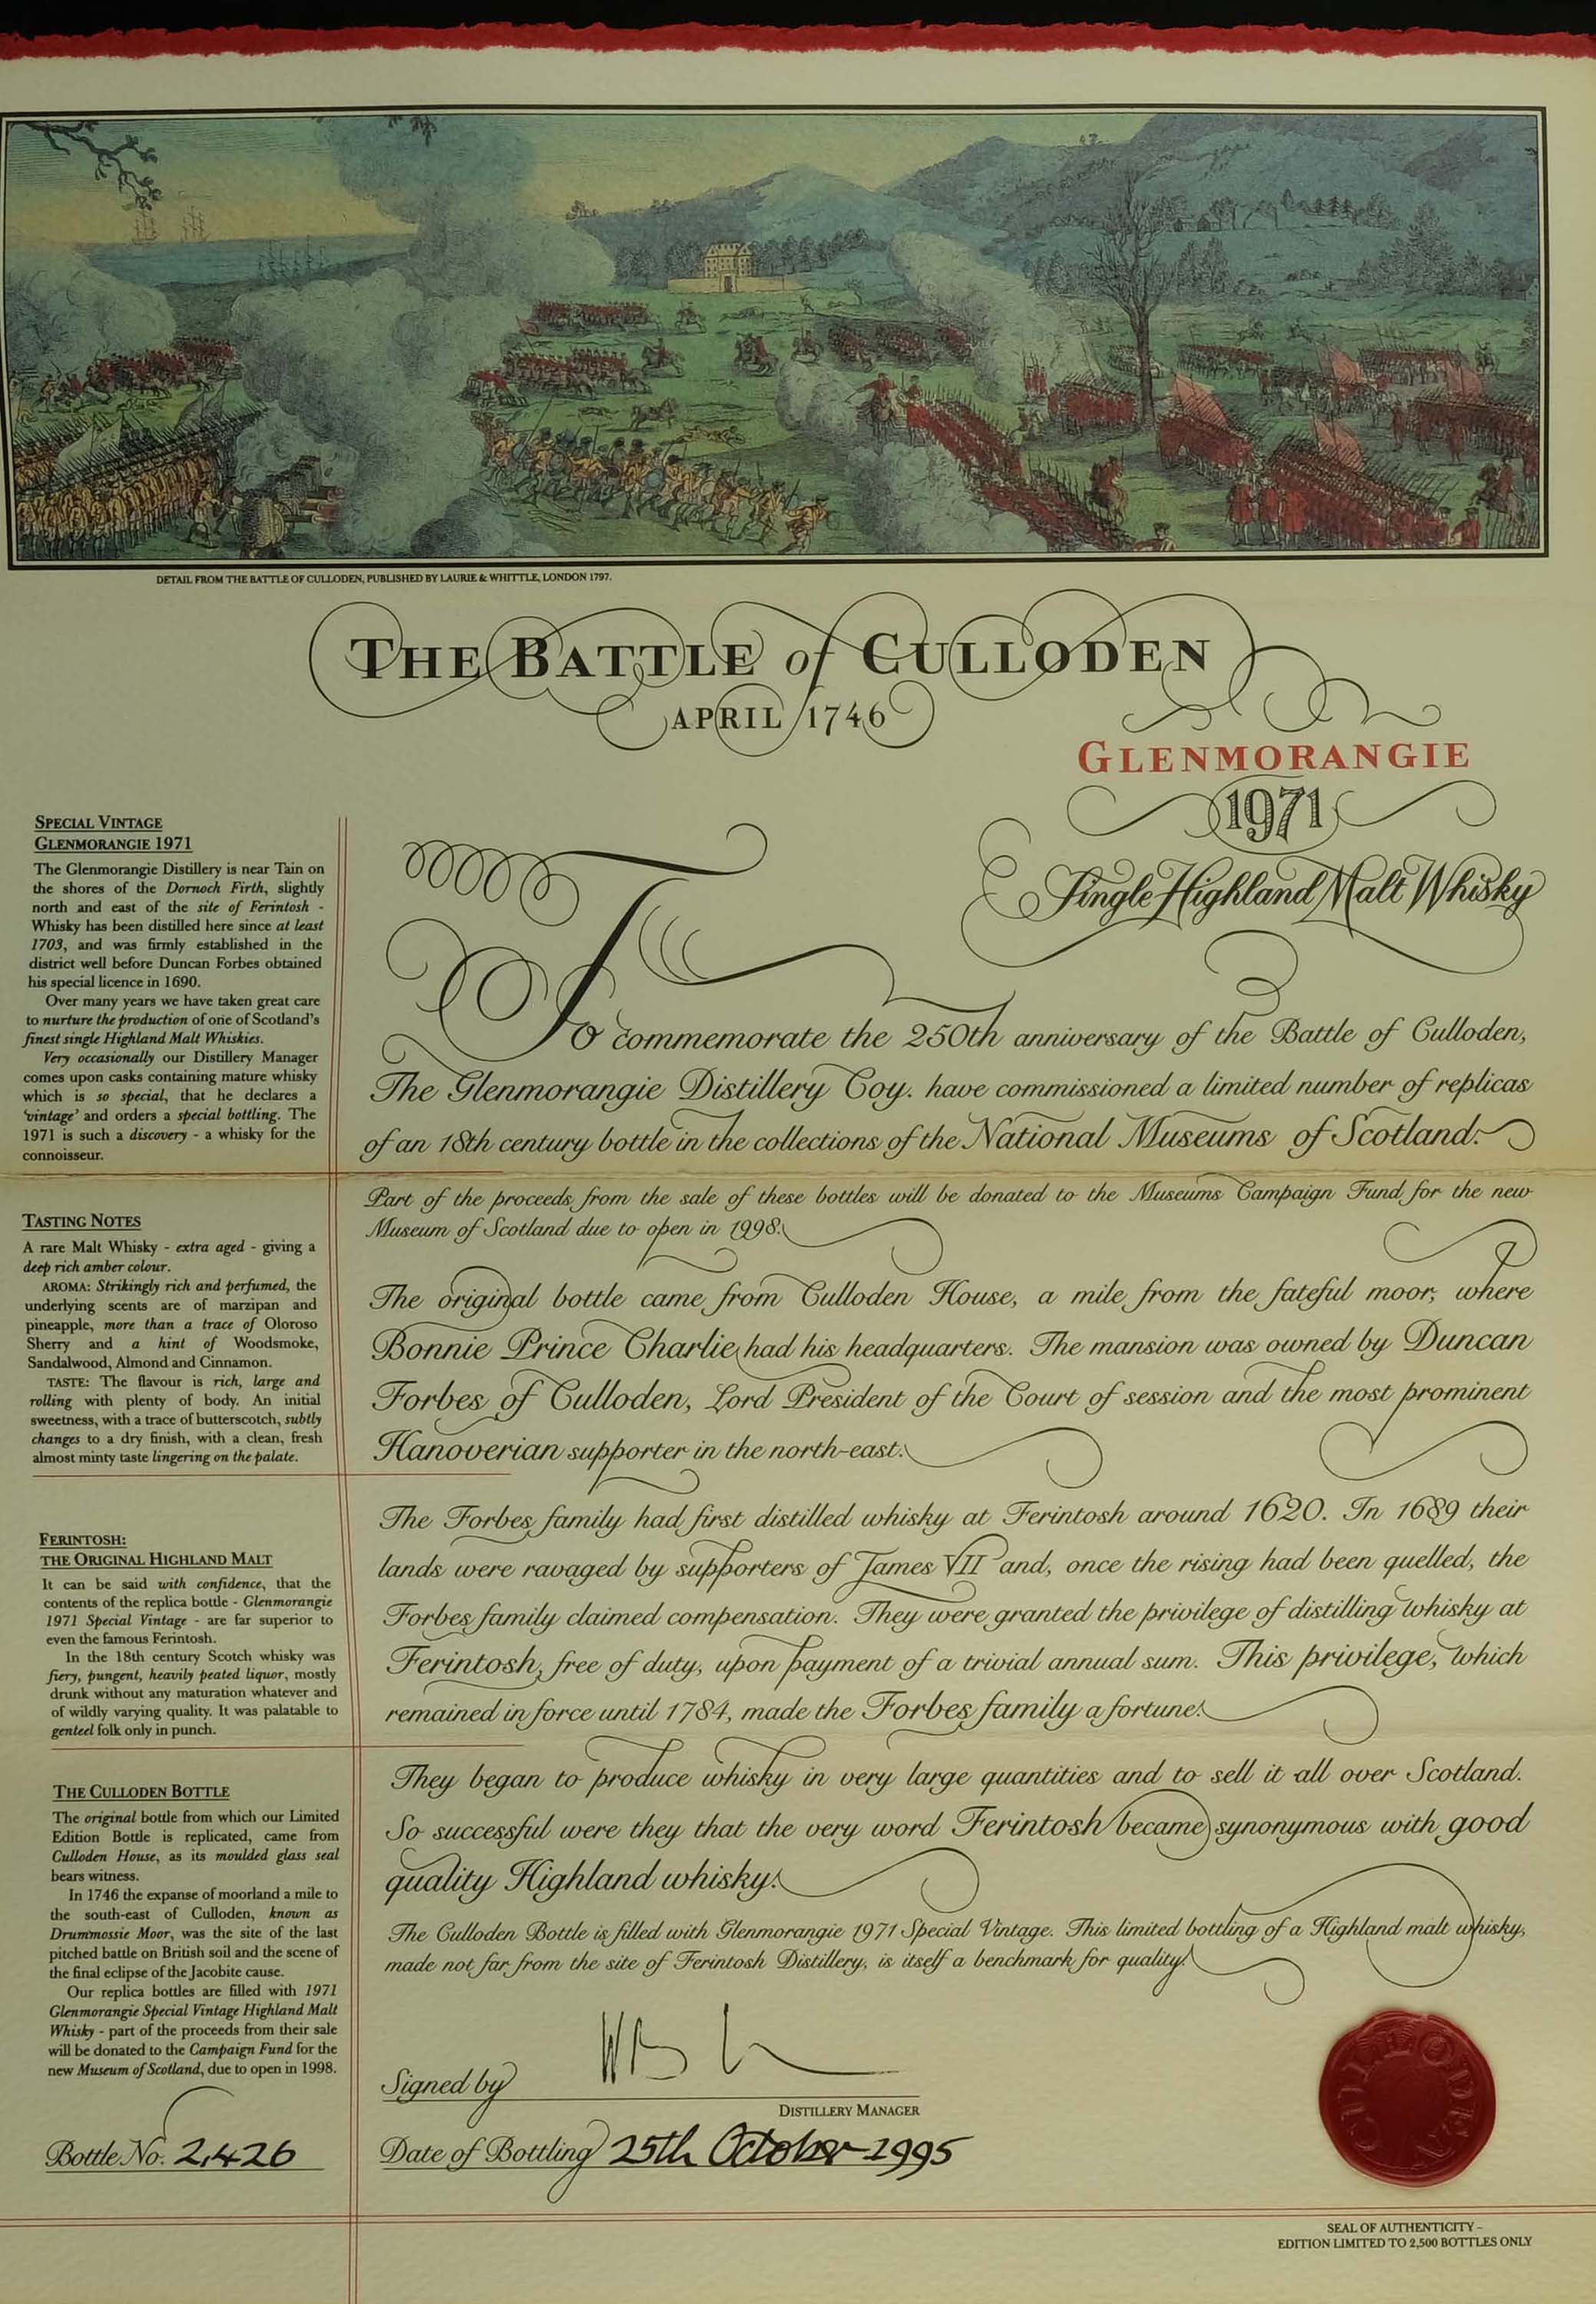 DETAIL FROM THE BATTLE OF CULLODEN, PUBLISHED BY LAURIE & WHITTLE, LONDON 1797.
THE BATTLE of CULLODEN
APRIL 1746
GLENMORANGIE
1971
Single Highland Malt Whisky
SPECIAL VINTAGE
GLENMORANGIE 1971
The Glenmorangie Distillery is near Tain on
the shores of the Dornoch Firth, slightly
north and east of the site of Ferintosh -
Whisky has been distilled here since at least
1703, and was firmly established in the
district well before Duncan Forbes obtained
his special licence in 1690.
Over many years we have taken great care
to nurture the production of one of Scotland's
finest single Highland Malt Whiskies.
Very occasionally our Distillery Manager
comes upon casks containing mature whisky
which is so special, that he declares a
'vintage' and orders a special bottling. The
1971 is such a discovery - a whisky for the
connoisseur.
TASTING NOTES
A rare Malt Whisky - extra aged - giving a
deep rich amber colour.
AROMA: Strikingly rich and perfumed, the
underlying scents are of marzipan and
pineapple, more than a trace of Oloroso
Sherry and a hint of Woodsmoke,
Sandalwood, Almond and Cinnamon.
TASTE: The flavour is rich, large and
rolling with plenty of body. An initial
sweetness, with a trace of butterscotch, subtly
changes to a dry finish, with a clean, fresh
almost minty taste lingering on the palate.
FERINTOSH:
THE ORIGINAL HIGHLAND MALT
It can be said with confidence, that the
contents of the replica bottle - Glenmorangie
1971 Special Vintage - are far superior to
even the famous Ferintosh.
In the 18th century Scotch whisky was
fiery, pungent, heavily peated liquor, mostly
drunk without any maturation whatever and
of wildly varying quality. It was palatable to
genteel folk only in punch.
THE CULLODEN BOTTLE
The original bottle from which our Limited
Edition Bottle is replicated, came from
Culloden House, as its moulded glass seal
bears witness.
In 1746 the expanse of moorland a mile to
the south-east of Culloden, known as
Drummossie Moor, was the site of the last
pitched battle on British soil and the scene of
the final eclipse of the Jacobite cause.
Our replica bottles are filled with 1971
Glenmorangie Special Vintage Highland Malt
Whisky - part of the proceeds from their sale
will be donated to the Campaign Fund for the
new Museum of Scotland, due to open in 1998.
Bottle No. 2,426
To commemorate the 250th anniversary of the Battle of Culloden,
The Glenmorangie Distillery Coy. have commissioned a limited number of replicas
of an 18th century bottle in the collections of the National Museums of Scotland.
Part of the proceeds from the sale of these bottles will be donated to the Museums Campaign Fund for the new
Museum of Scotland due to open in 1998.
The original bottle came from Culloden House, a mile from the fateful moor, where
Bonnie Prince Charlie had his headquarters. The mansion was owned by Duncan
Forbes of Culloden, Lord President of the Court of session and the most prominent
Hanoverian supporter in the north-east.
The Forbes family had first distilled whisky at Ferintosh around 1620. In 1689 their
lands were ravaged by supporters of James VII and, once the rising had been quelled, the
Forbes family claimed compensation. They were granted the privilege of distilling whisky at
Ferintosh, free of duty, upon payment of a trivial annual sum. This privilege, which
remained in force until 1784, made the Forbes family a fortune.
They began to produce whisky in very large quantities and to sell it all over Scotland.
So successful were they that the very word Ferintosh became synonymous with good
quality Highland whisky.
The Culloden Bottle is filled with Glenmorangie 1971 Special Vintage. This limited bottling of a Highland malt whisky,
made not far from the site of Ferintosh Distillery, is itself a benchmark for quality.
Signed by
DISTILLERY MANAGER
Date of Bottling 25th October 1995
CULLODEN
SEAL OF AUTHENTICITY -
EDITION LIMITED TO 2,500 BOTTLES ONLY